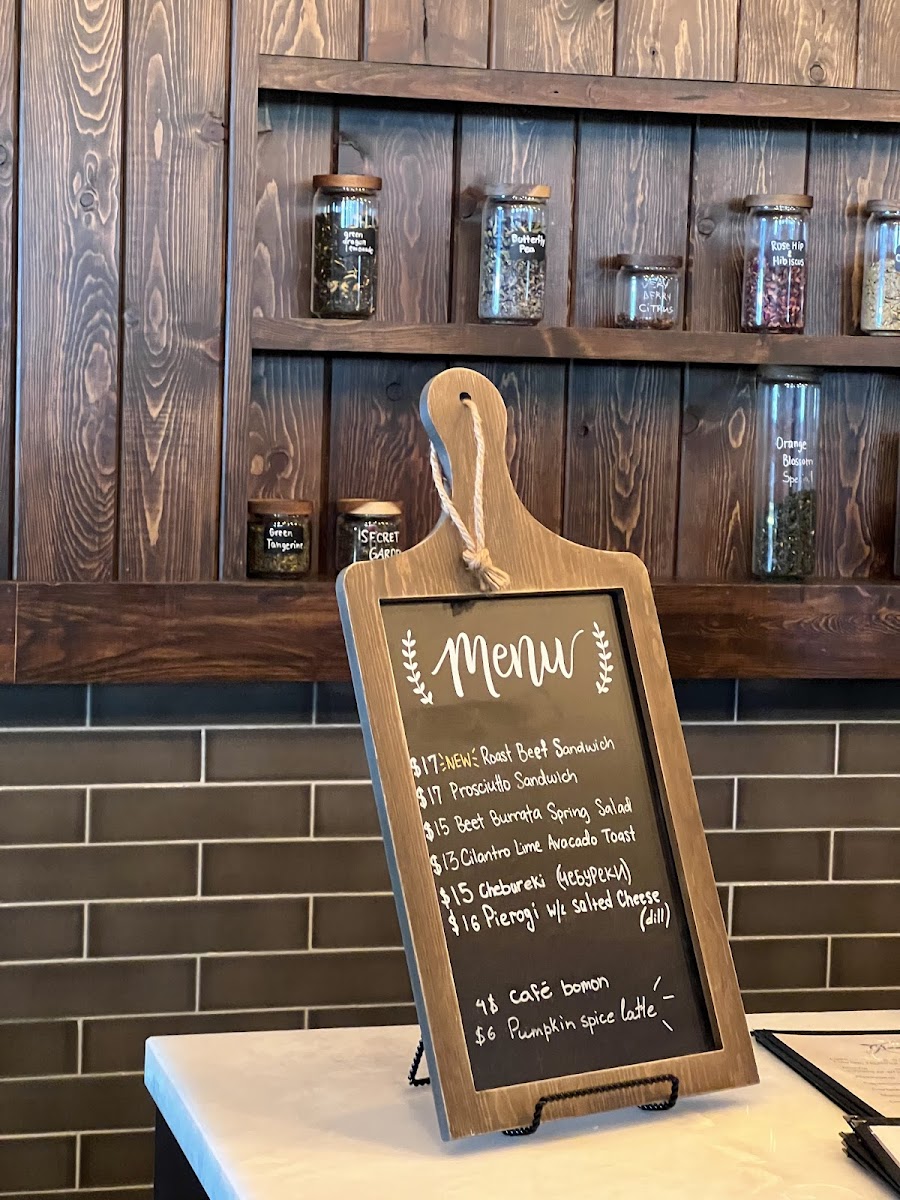 green
dragon
lemonade
Butterfly
Pea
VERY
BERRY
CITRUS
Rose Hip
&
Hibiscus
Orange
Blossom
Green
Tangerine
SECRET
Menu
$17 NEW Roast Beef Sandwich
$17 Prosciutto Sandwich
$15 Beet Burrata Spring Salad
$13 Cilantro Lime Avocado Toast
$15 Chebureki (чебуреки)
$16 Pierogi w/ Salted Cheese
(dill)
4$ café bomon
$6 Pumpkin spice latte